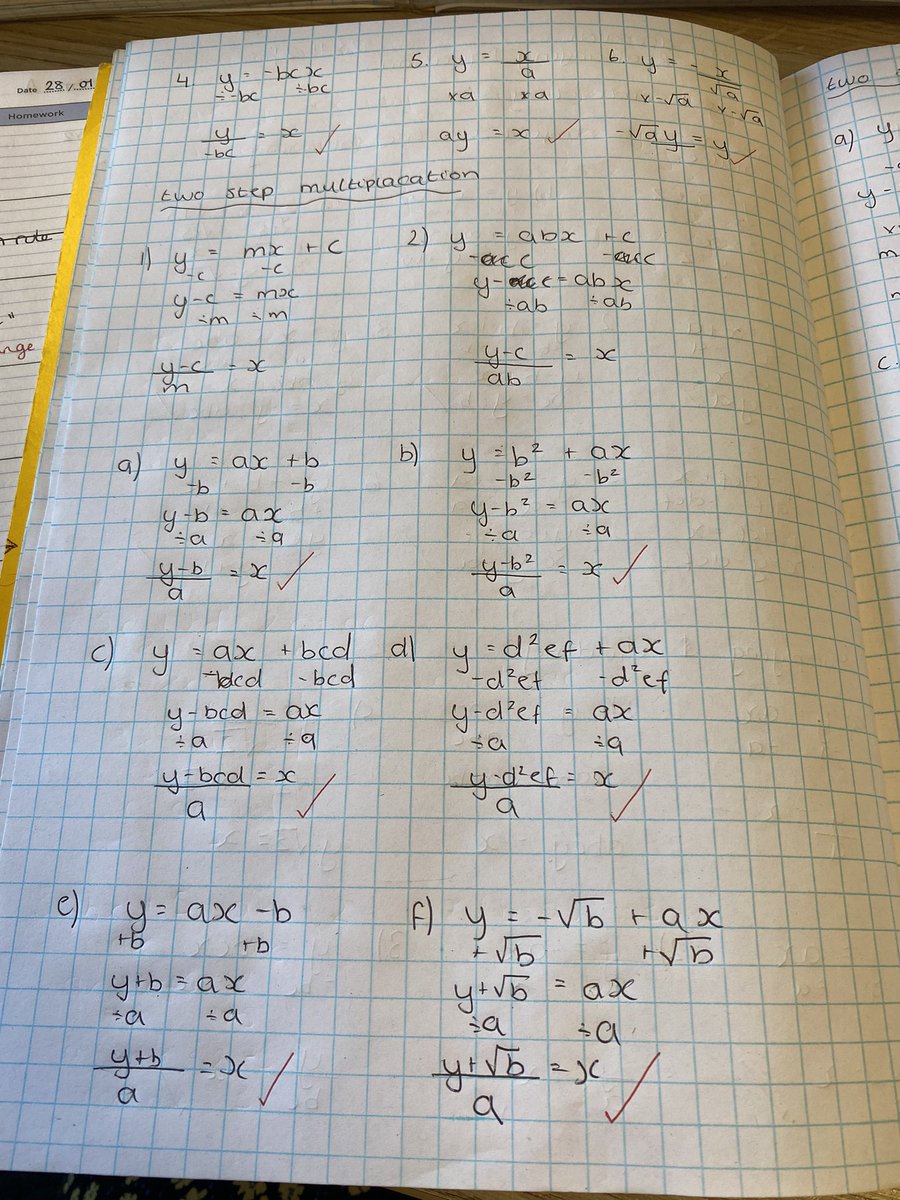 Date 28/01
Homework
4. y = -bcx
÷-bc ÷bc
y/-bc = x ✓
5. y = x/a
×a ×a
ay = x ✓
6. y = -x/√a
×-√a ×-√a
-√a y = y ✓
two step multiplacation
1) y = mx + c
-c -c
y-c = mx
÷m ÷m
y-c/m = x
2) y = abx + c
-c -c
y-c = abx
÷ab ÷ab
y-c/ab = x
a) y = ax + b
-b -b
y-b = ax
÷a ÷a
y-b/a = x ✓
b) y = b² + ax
-b² -b²
y-b² = ax
÷a ÷a
y-b²/a = x ✓
c) y = ax + bcd
-bcd -bcd
y-bcd = ax
÷a ÷a
y-bcd/a = x ✓
d) y = d²ef + ax
-d²ef -d²ef
y-d²ef = ax
÷a ÷a
y-d²ef/a = x ✓
e) y = ax - b
+b +b
y+b = ax
÷a ÷a
y+b/a = x ✓
f) y = -√b + ax
+√b +√b
y+√b = ax
÷a ÷a
y+√b/a = x ✓
two
a) y
y-
c.